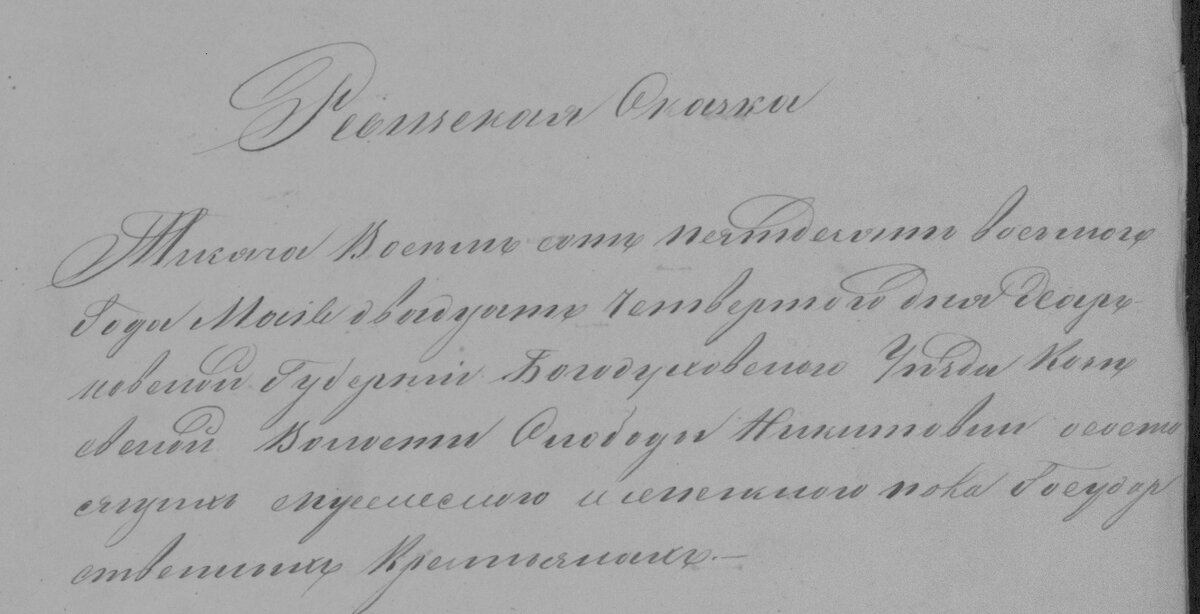 Ревизская Сказка
Тысяча Восемь сотъ пятдесятъ восьмого
Года Маія двадцать четвертого дня Харь-
ковской Губерніи Богодуховского Уѣзда Кон
свской Волости Слободы Никитовки о состо
ящихъ мужеского и женского пола Государ
ственныхъ Крестьянахъ.—